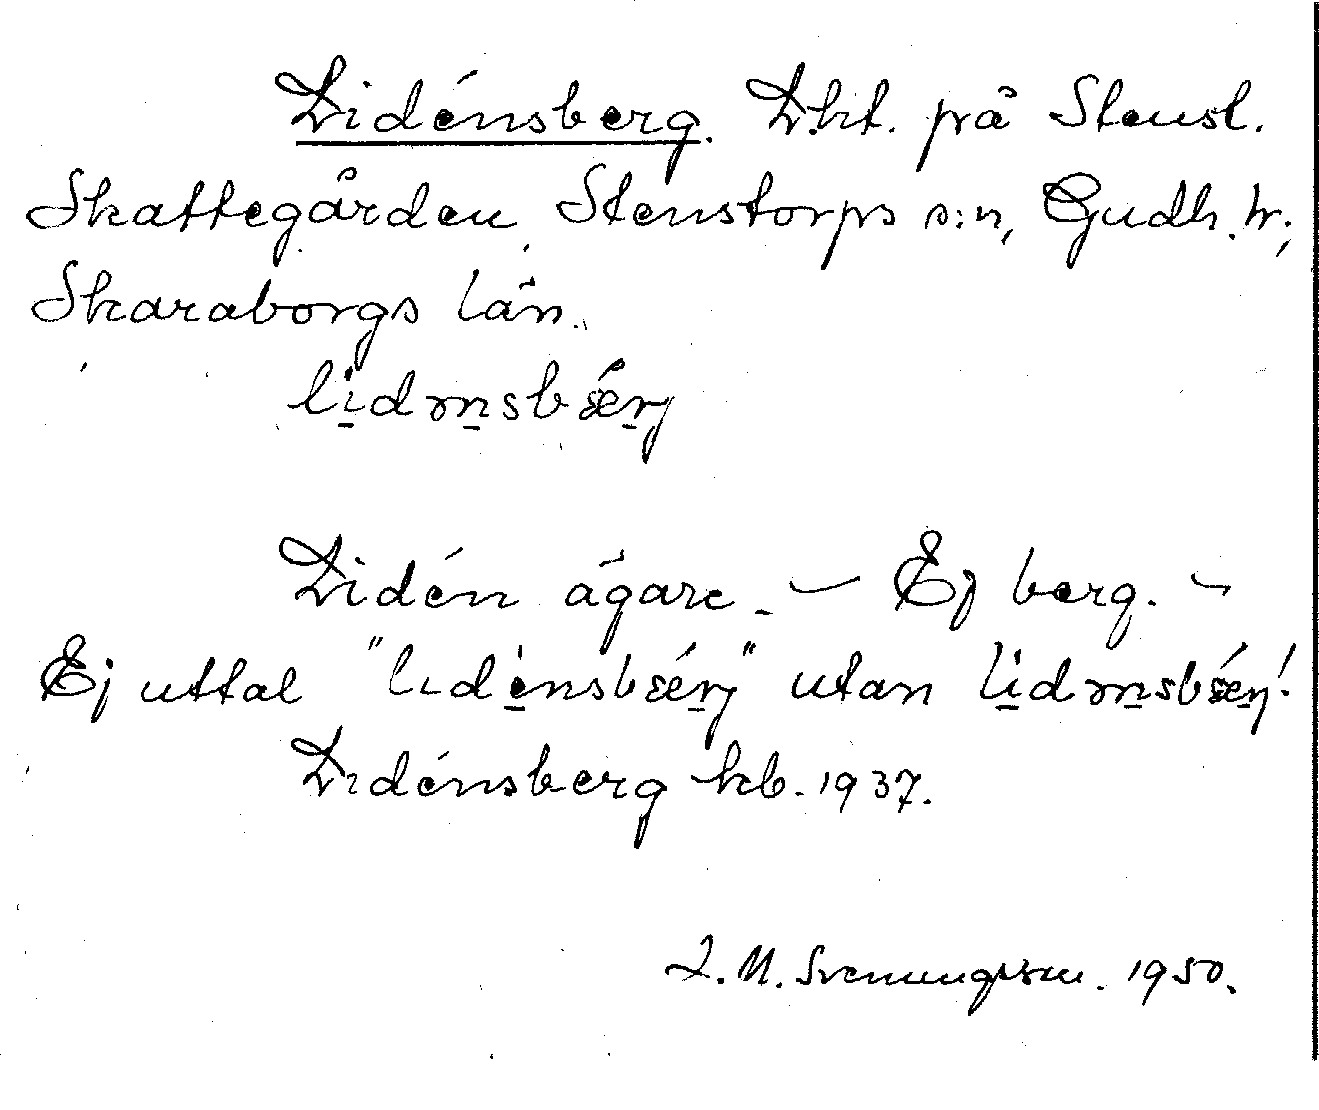 Lidénsberg. Lht. på Stensl.
Skattegården, Stenstorps s:n, Gudh. hr.,
Skaraborgs län.
li̱dɔn̠sbǽrj
Lidén ägare. – Ej berg. –
Ej uttal "lidė̱nsbǽrj" utan li̱dɔn̠sbǽrj!
Lidénsberg kb. 1937.
Svenungsson. 1950.